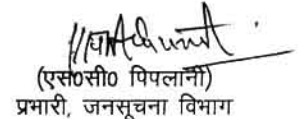 (एस०सी० पिपलानी)
प्रभारी, जनसूचना विभाग